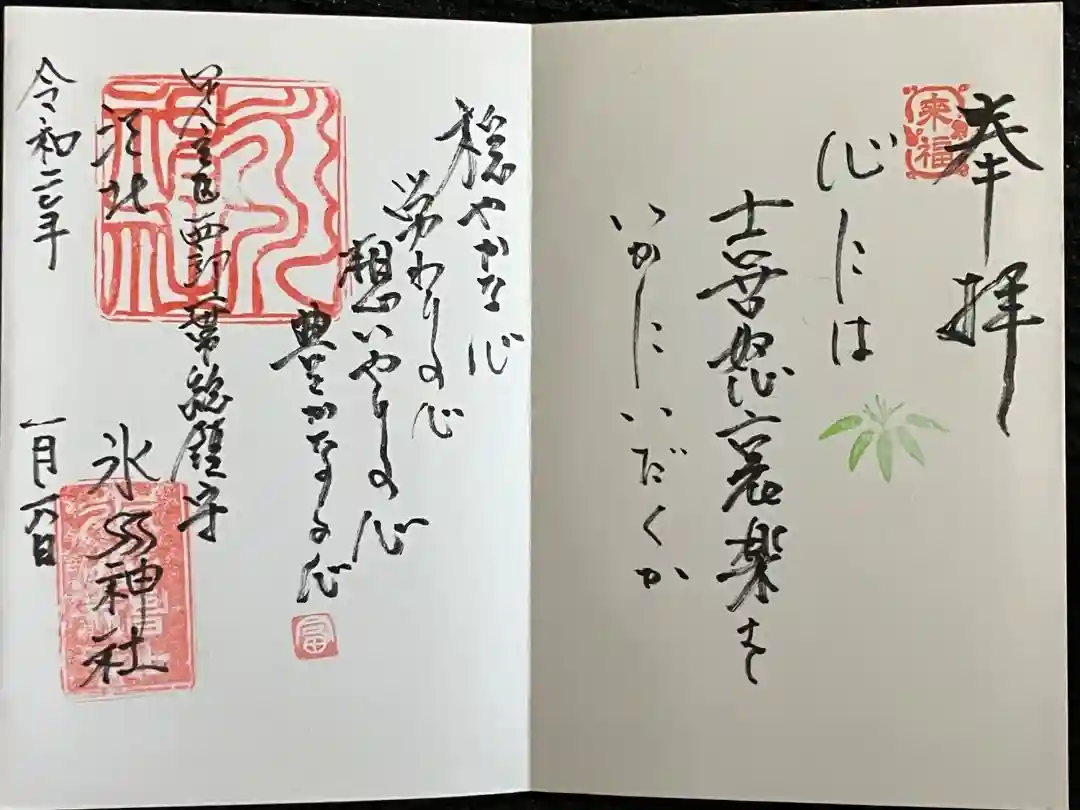 奉拝
來福
心には
喜怒哀楽を
いかにいだくか
穏やかな心
労わりの心
想いやりの心
豊かなる心
富
足立区西部一帯総鎮守
江北
氷川神社
令和二年
一月